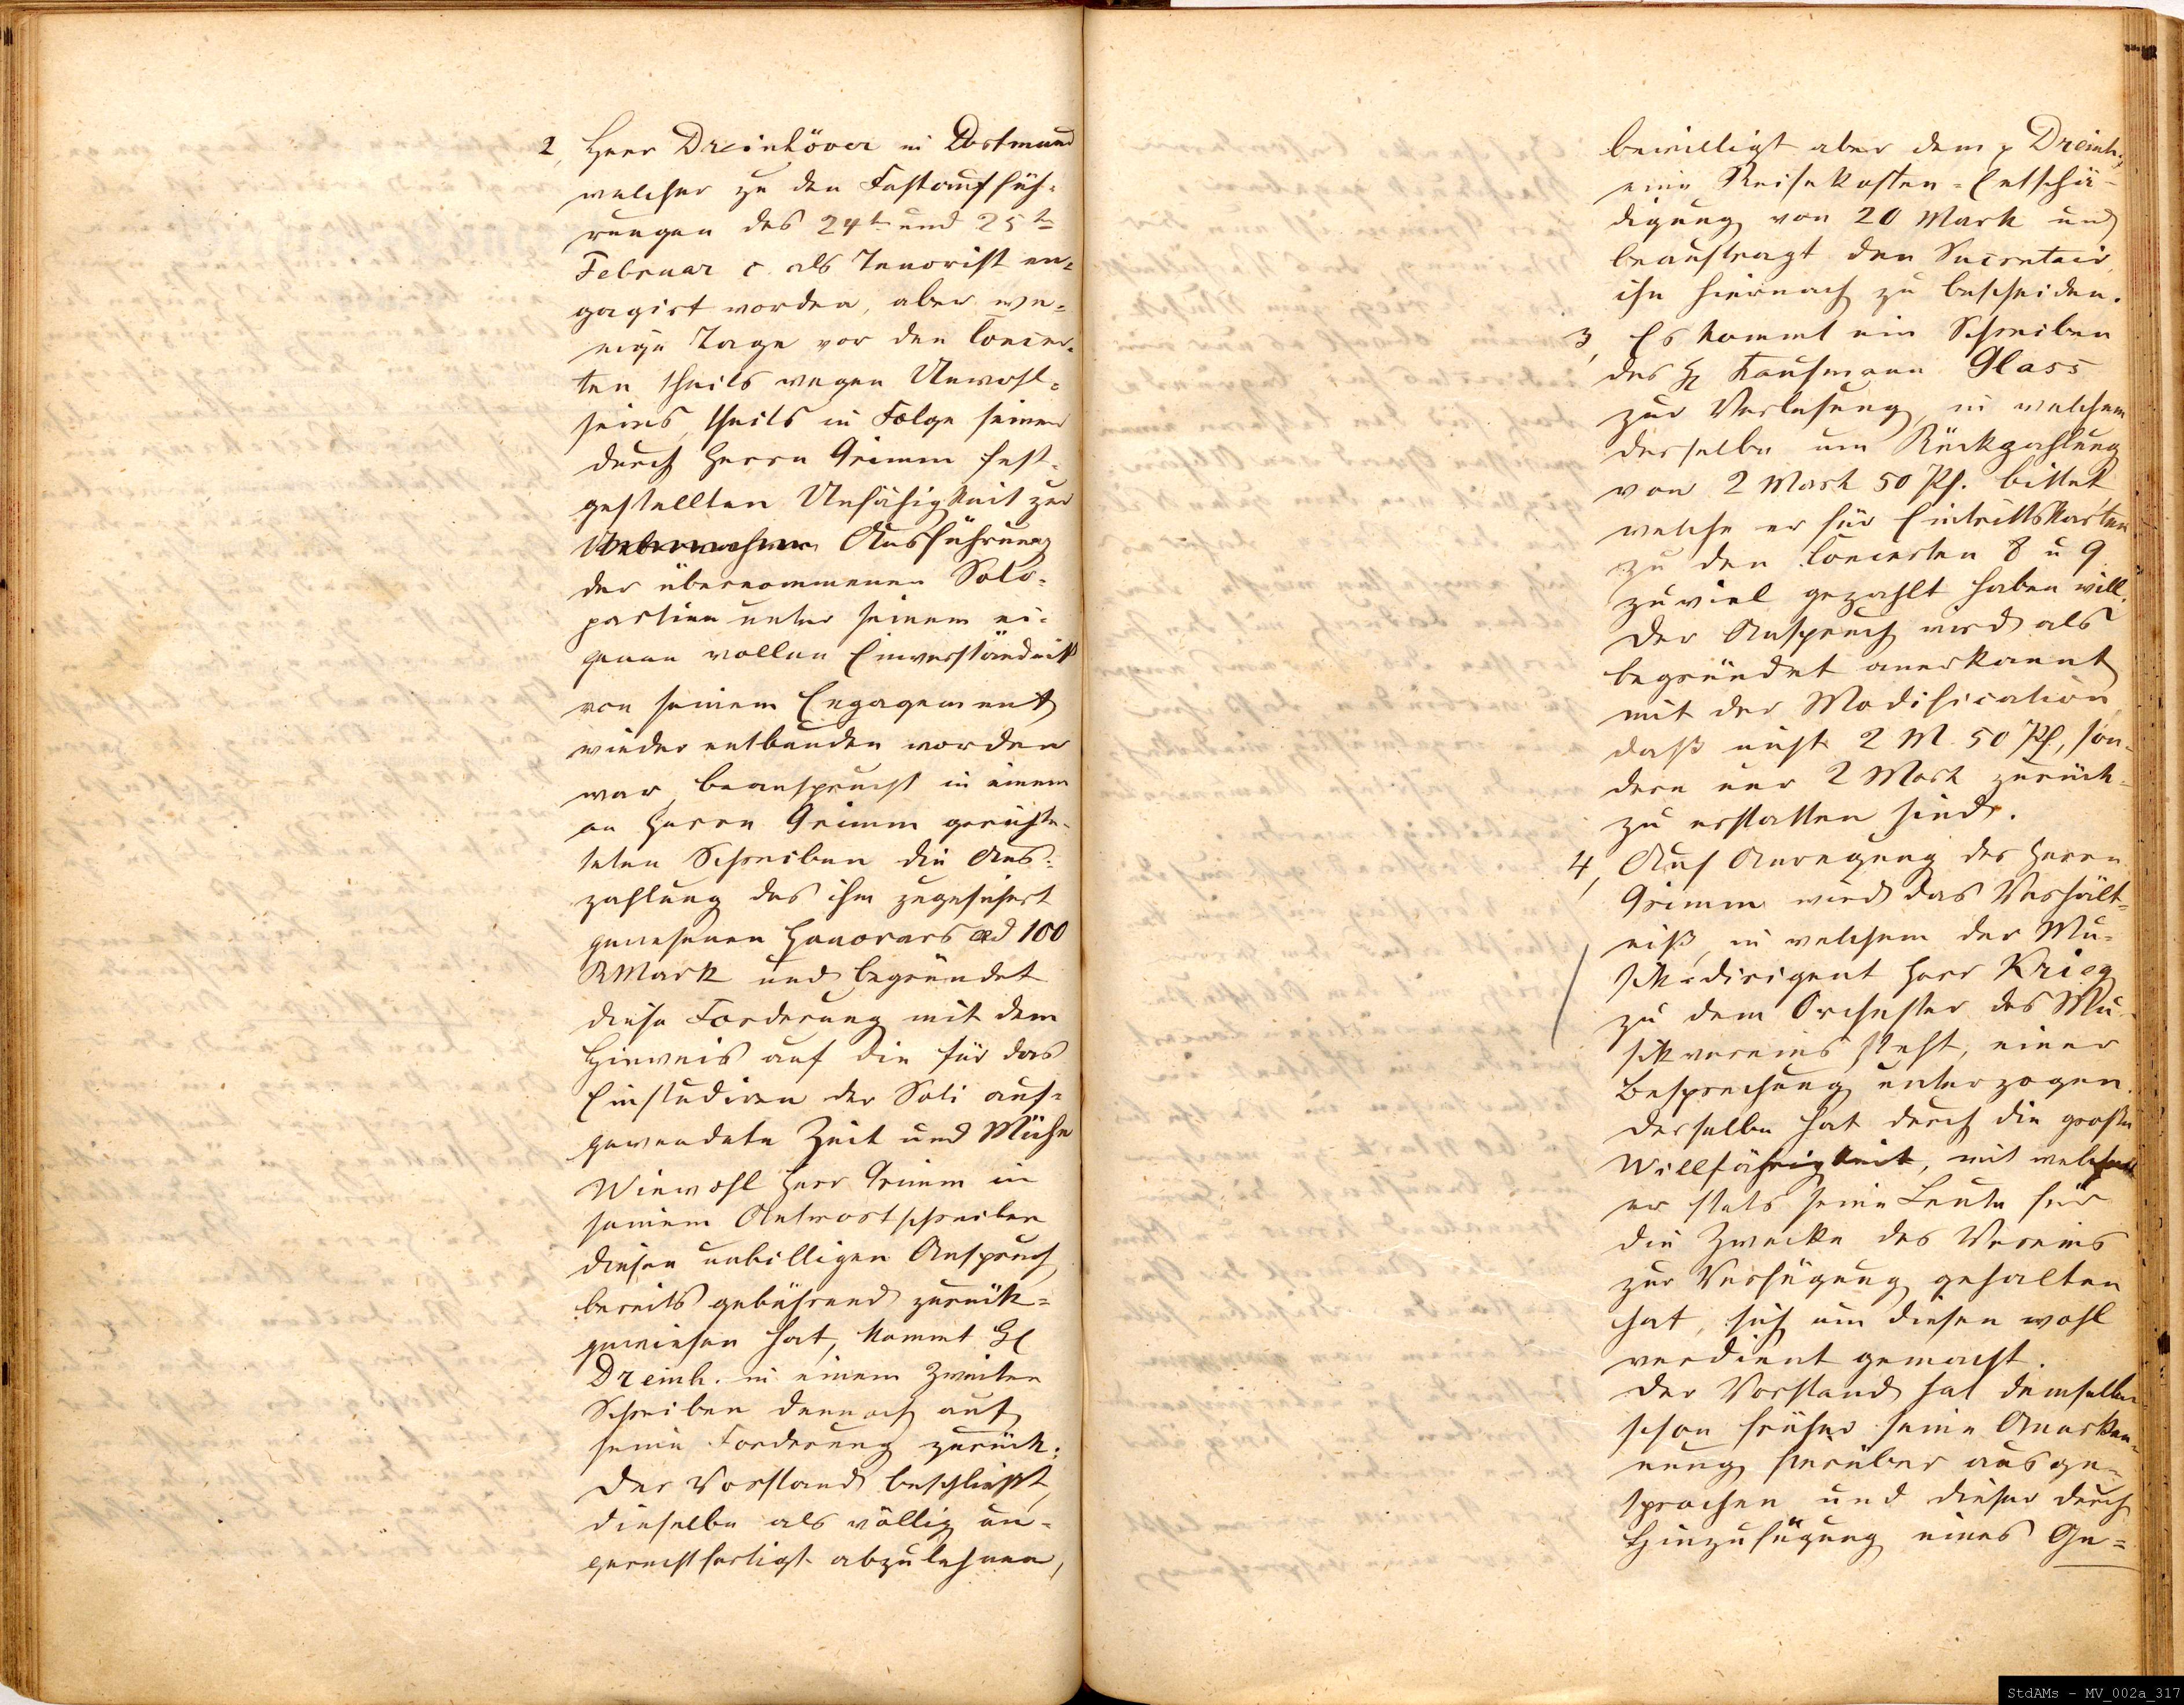 2, Herr Dreinhöver in Dortmund
welcher zu den Festauffüh-
rungen des 24t und 25t
Februar c. als Tenorist en-
gagirt worden, aber we-
nige Tage vor den Concer-
ten theils wegen Unwohl-
seins, theils in Folge seiner
durch Herrn Grimm fest-
gestellten Unfähigkeit zur
Ausführung
der übernommenen Solo-
partien unter seinem ei-
genen vollen Einverständniß
von seinem Engagement
wieder entbunden worden
war, beansprucht in einem
an Herrn Grimm gerichte-
teten Schreiben die Aus-
zahlung des ihm zugesichert
gewesenen Honorars ad 100
RMark und begründet
diese Forderung mit dem
Hinweis auf die für das
Einstudiren der Soli auf-
gewendete Zeit und Mühe
Wiewohl Herr Grimm in
seinem Antwortschreiben
diesen unbilligen Anspruch
bereits gebührend zurück-
gewiesen hat, kommt H
Dreinh. in einem zweiten
Schreiben dennoch auf
seine Forderung zurück.
Der Vorstand beschließt,
dieselbe als völlig un-
gerechtfertigt abzulehnen,
bewilligt aber dem p Dreinh.
eine Reisekosten-Entschä-
digung von 20 Mark und
beauftragt den Secretair,
ihn hiernach zu bescheiden.
3, Es kommt ein Schreiben
des H Kaufmann Glass
zur Verlesung, in welchem
derselbe um Rückzahlung
von 2 Mark 50 Pf. bittet,
welche er für Eintrittskarten
zu den Concerten 8 u 9
zuviel gezahlt haben will.
Der Anspruch wird als
begründet anerkannt
mit der Modification,
daß nicht 2 M. 50 Pf., son-
dern nur 2 Mark zurück-
zu erstatten sind.
4, Auf Anregung des Herrn
Grimm wird das Verhält-
niß, in welchem der Mu-
sikdirigent Herr Krieg
zu dem Orchester des Mu-
sikvereins steht, einer
Besprechung unterzogen.
Derselbe hat durch die große
Willfährigkeit, mit welcher
er stets seine Leute für
die Zwecke des Vereins
zur Verfügung gehalten
hat, sich um diesen wohl
verdient gemacht.
Der Vorstand hat demselben
schon früher seine Anerken-
nung hierüber ausge-
sprochen und dieser durch
Hinzufügung eines Ge-
StdAMs - MV_002a_317